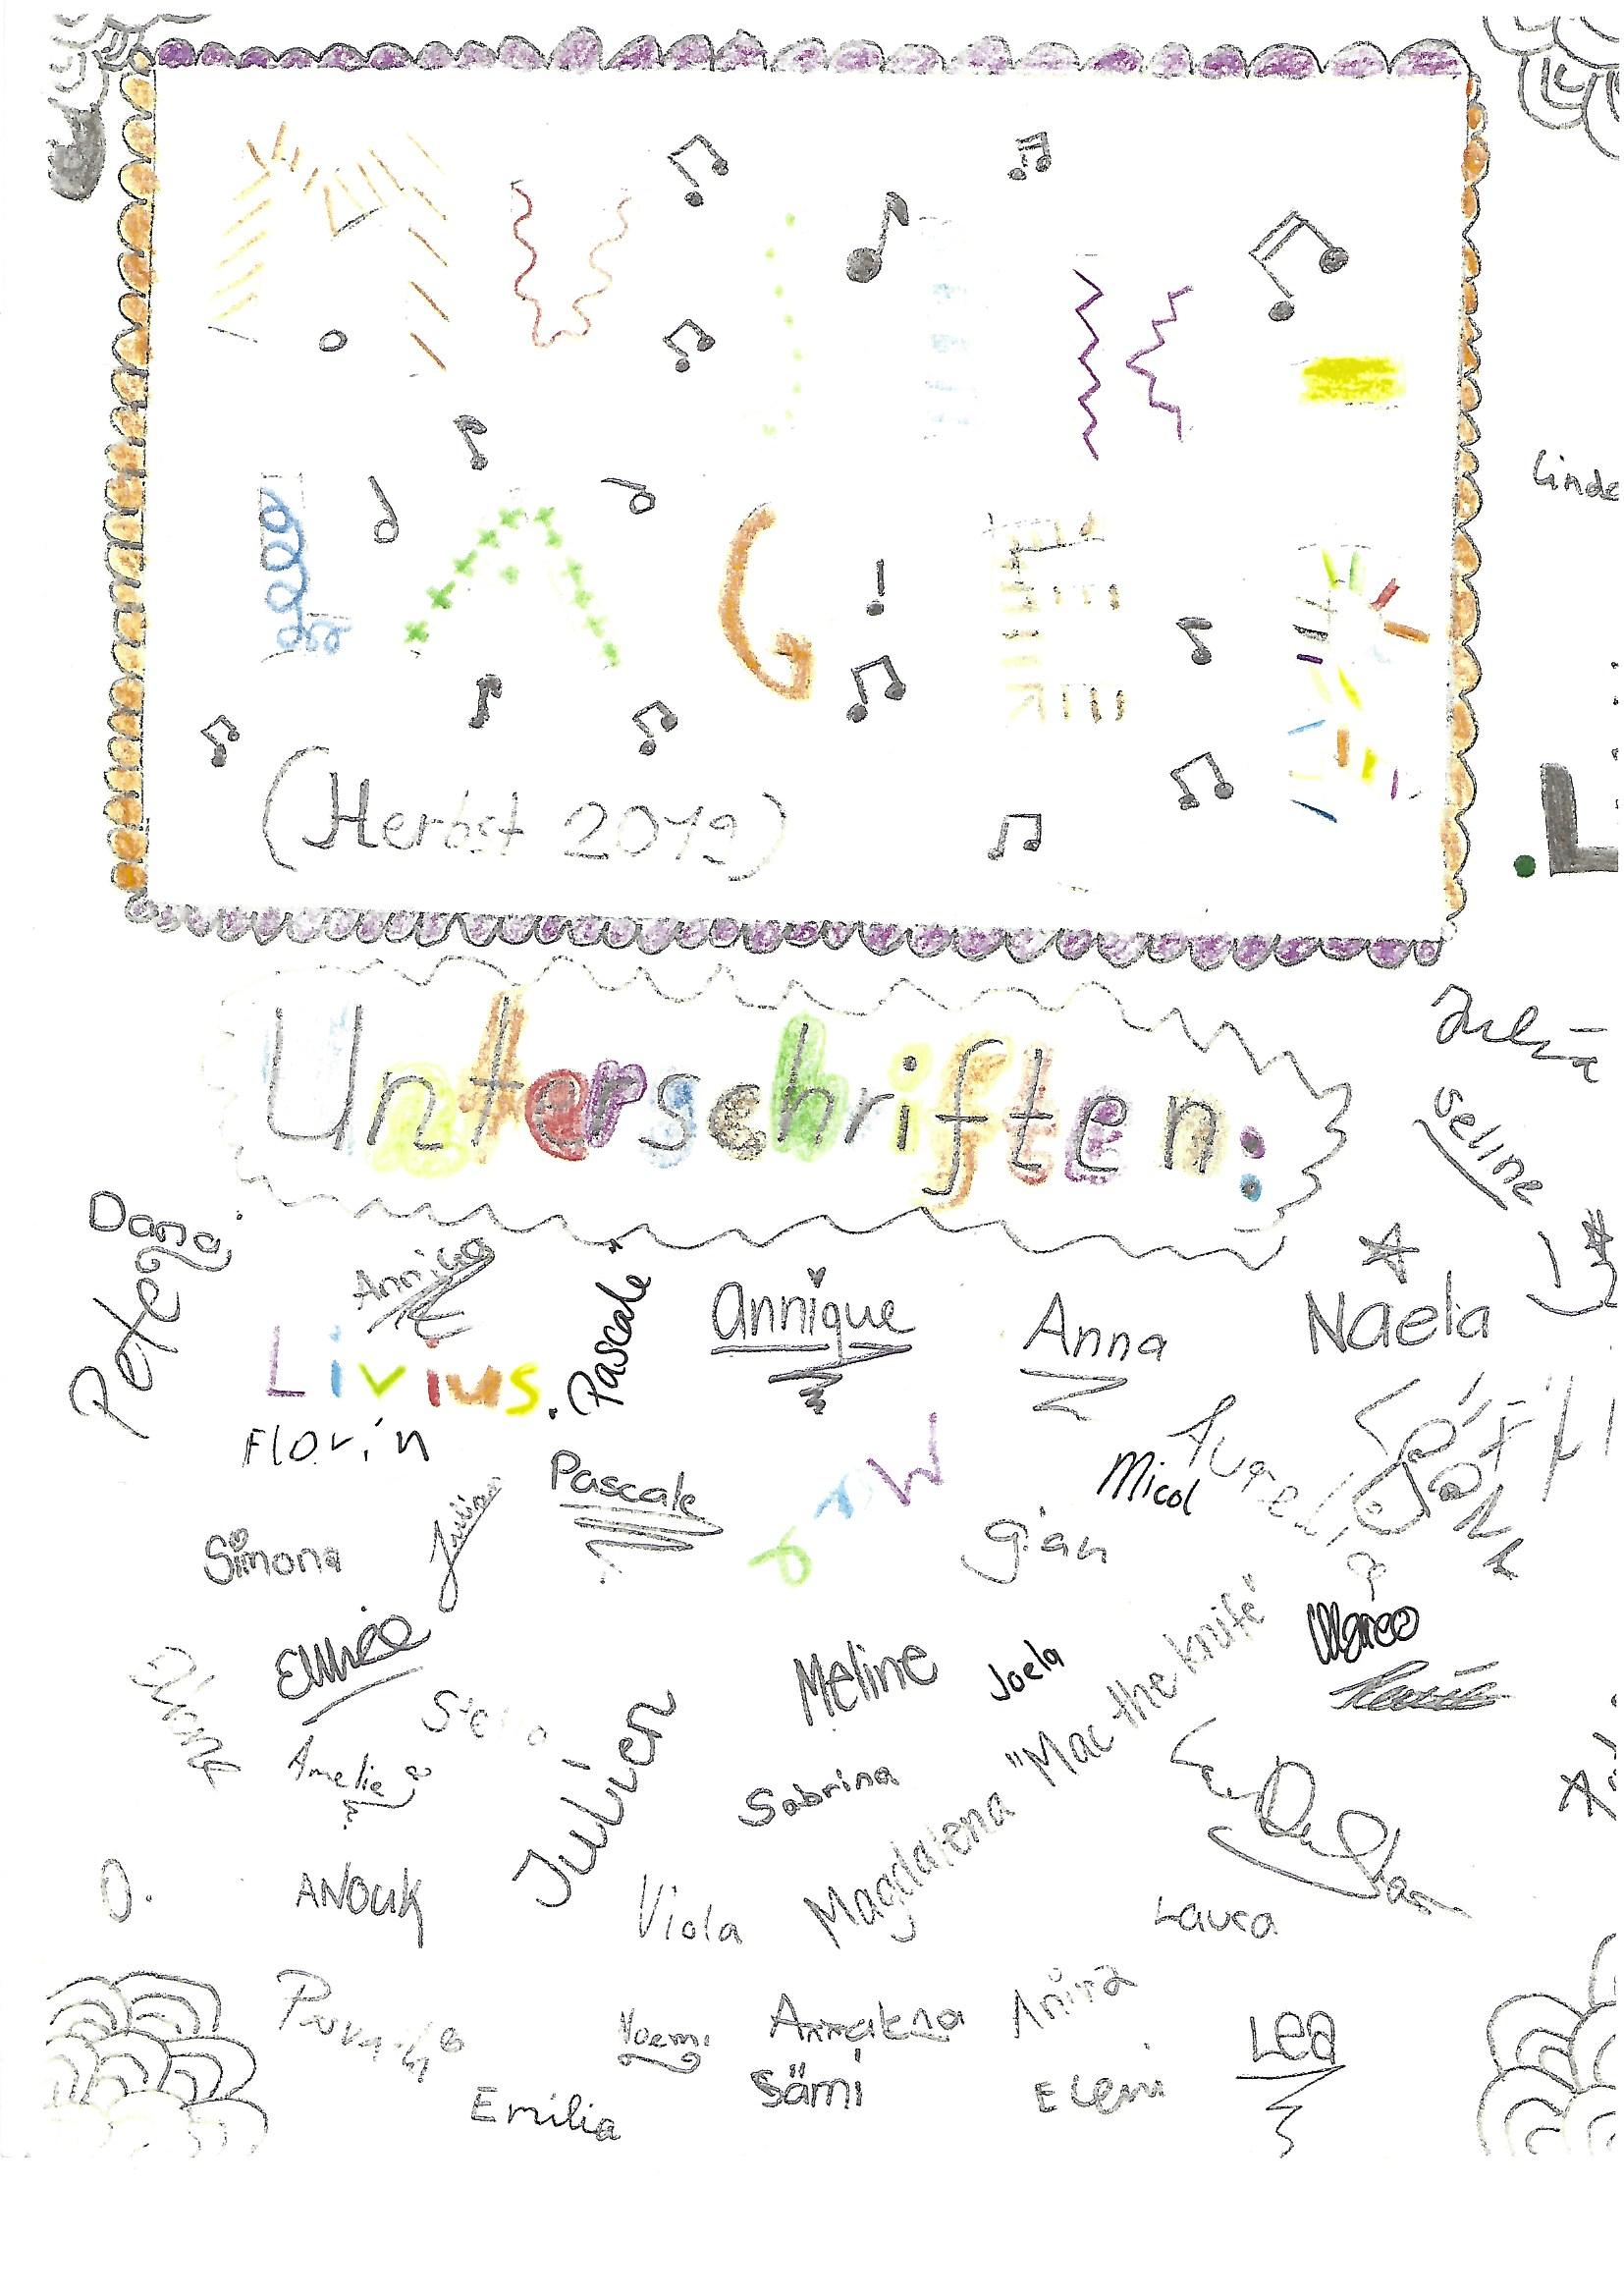 MUSIK-
LAGER
(Herbst 2019)
Unterschriften:
Seline
Dana
Peter
Annika
Livius.
Pascale
Annique
Anna
Naela
Florin
Pascale
Micol
Aurelia
Simona
Gian
Meline
Joela
Amelie
Julien
Sabrina
Magdalena "Mac the knife"
O.
ANOUK
Viola
Laura
Noemi
Annalena
Anina
Lea
Sämi
Eleni
Emilia